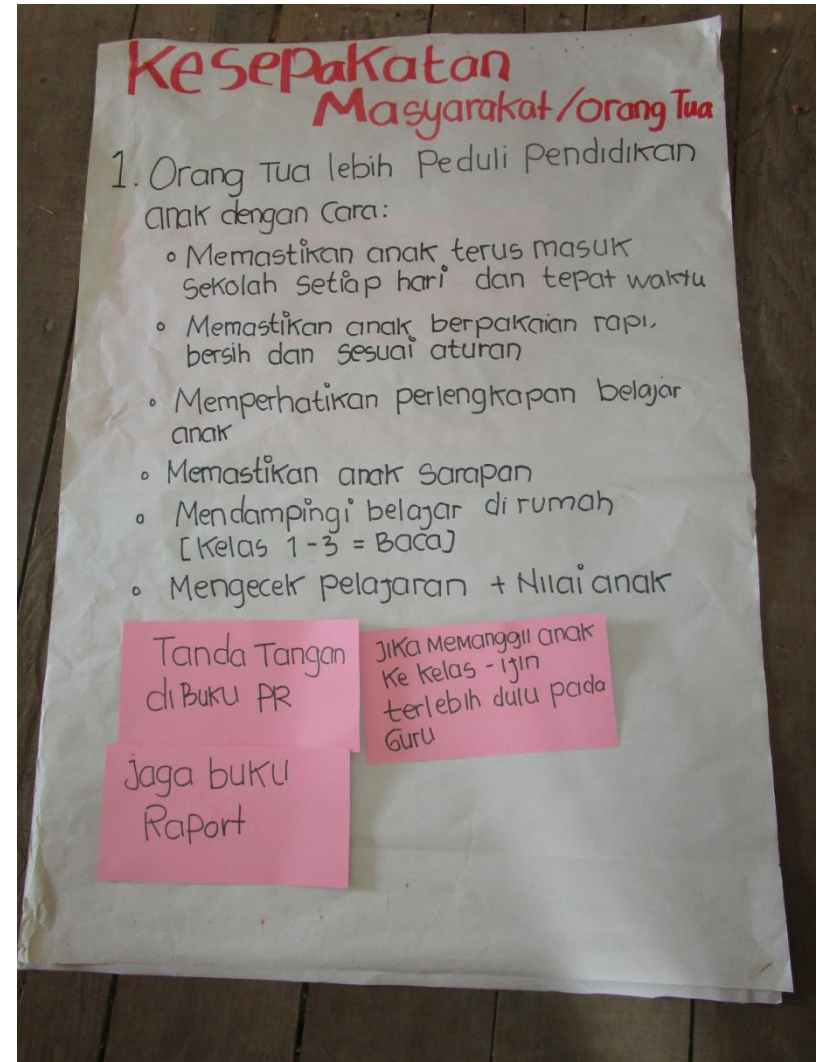 Kesepakatan
Masyarakat/orang Tua
1. Orang Tua lebih Peduli Pendidikan
anak dengan Cara:
• Memastikan anak terus masuk
sekolah setiap hari dan tepat waktu
• Memastikan anak berpakaian rapi,
bersih dan sesuai aturan
• Memperhatikan perlengkapan belajar
anak
• Memastikan anak Sarapan
• Mendampingi belajar di rumah
[Kelas 1-3 = Baca]
• Mengecek Pelajaran + Nilai anak
Tanda Tangan
di Buku PR
Jika Memanggil anak
Ke Kelas - ijin
terlebih dulu pada
Guru
Jaga buku
Raport